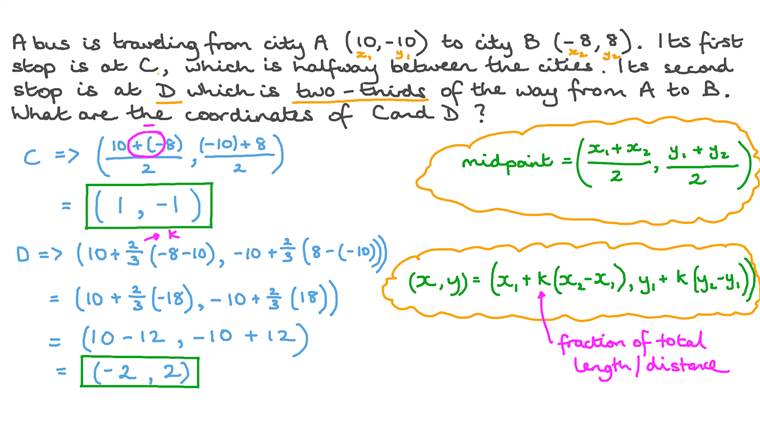 A bus is traveling from city A (10,-10) to city B (-8, 8). Its first
x₁ y₁ x₂ y₂
stop is at C, which is halfway between the cities. Its second
stop is at D which is two-thirds of the way from A to B.
What are the coordinates of C and D ?
C => ((10+(-8))/2, ((-10)+8)/2)
= (1, -1)
midpoint = ((x₁+x₂)/2, (y₁+y₂)/2)
k
D => (10+2/3(-8-10), -10+2/3(8-(-10)))
= (10+2/3(-18), -10+2/3(18))
= (10-12, -10+12)
= (-2, 2)
(x,y) = (x₁+k(x₂-x₁), y₁+k(y₂-y₁))
fraction of total
length/distance